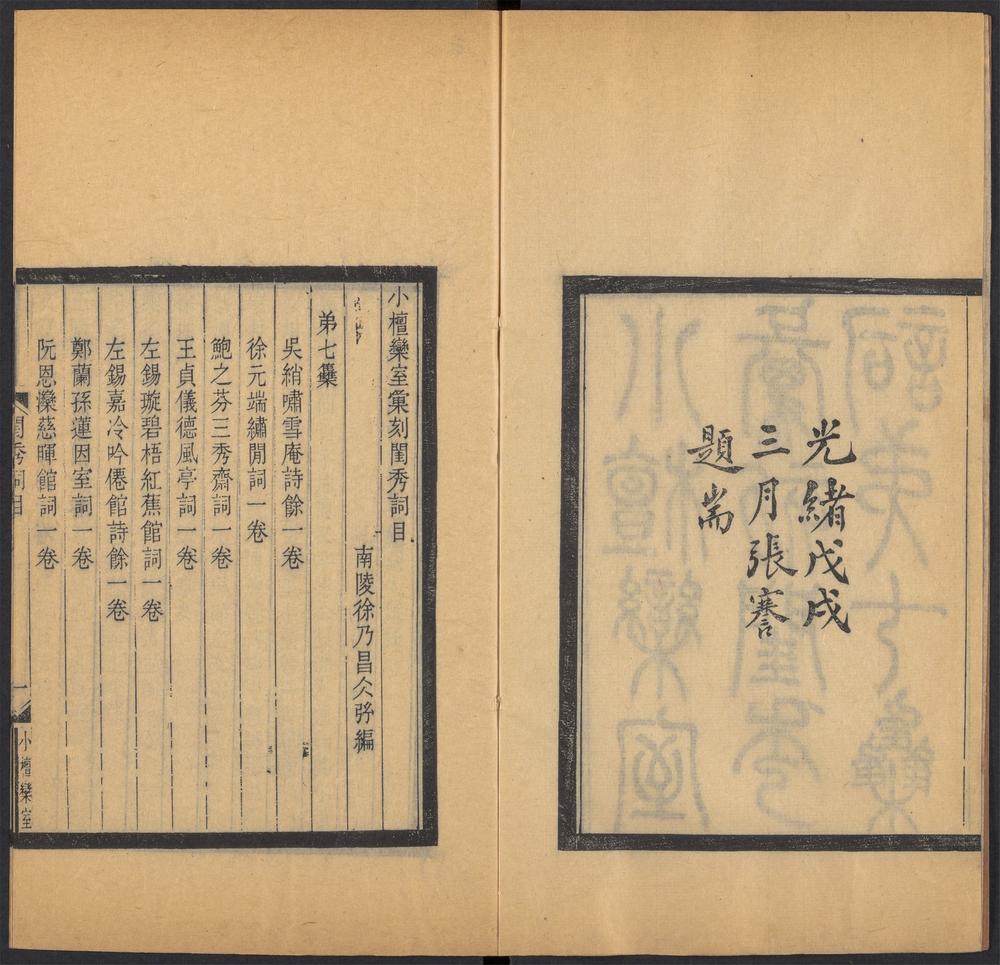 光緒戊戌
三月張謇
題耑
小檀欒室彙刻閨秀詞目
南陵徐乃昌仌弜編
弟七集
吳綃嘯雪庵詩餘一卷
徐元端繡閒詞一卷
鮑之芬三秀齋詞一卷
王貞儀德風亭詞一卷
左錫璇碧梧紅蕉館詞一卷
左錫嘉冷吟僊館詩餘一卷
鄭蘭孫蓮因室詞一卷
阮恩灤慈暉館詞一卷
閨秀詞目
一
小檀欒室